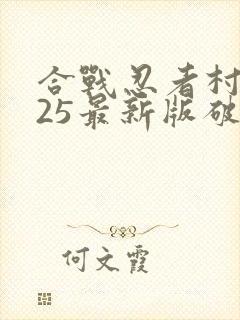 合戰忍者村
25最新版破
何文霞